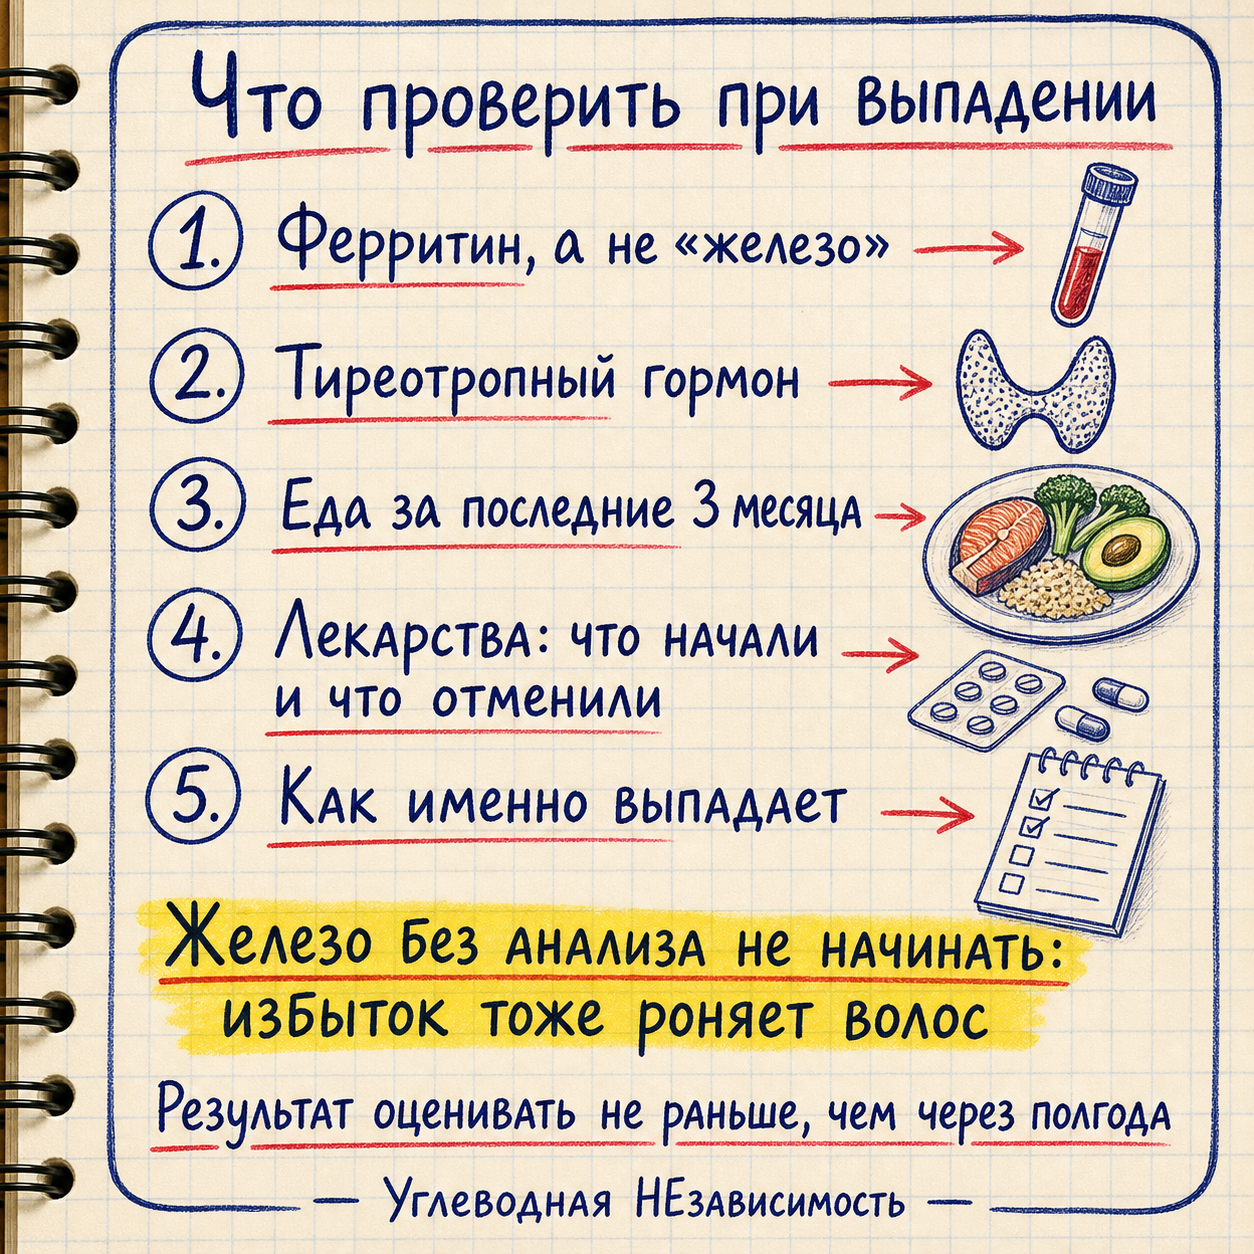 Что проверить при выпадении
1. Ферритин, а не «железо»
2. Тиреотропный гормон
3. Еда за последние 3 месяца
4. Лекарства: что начали
и что отменили
5. Как именно выпадает
Железо без анализа не начинать:
избыток тоже роняет волос
Результат оценивать не раньше, чем через полгода
— Углеводная НЕзависимость —